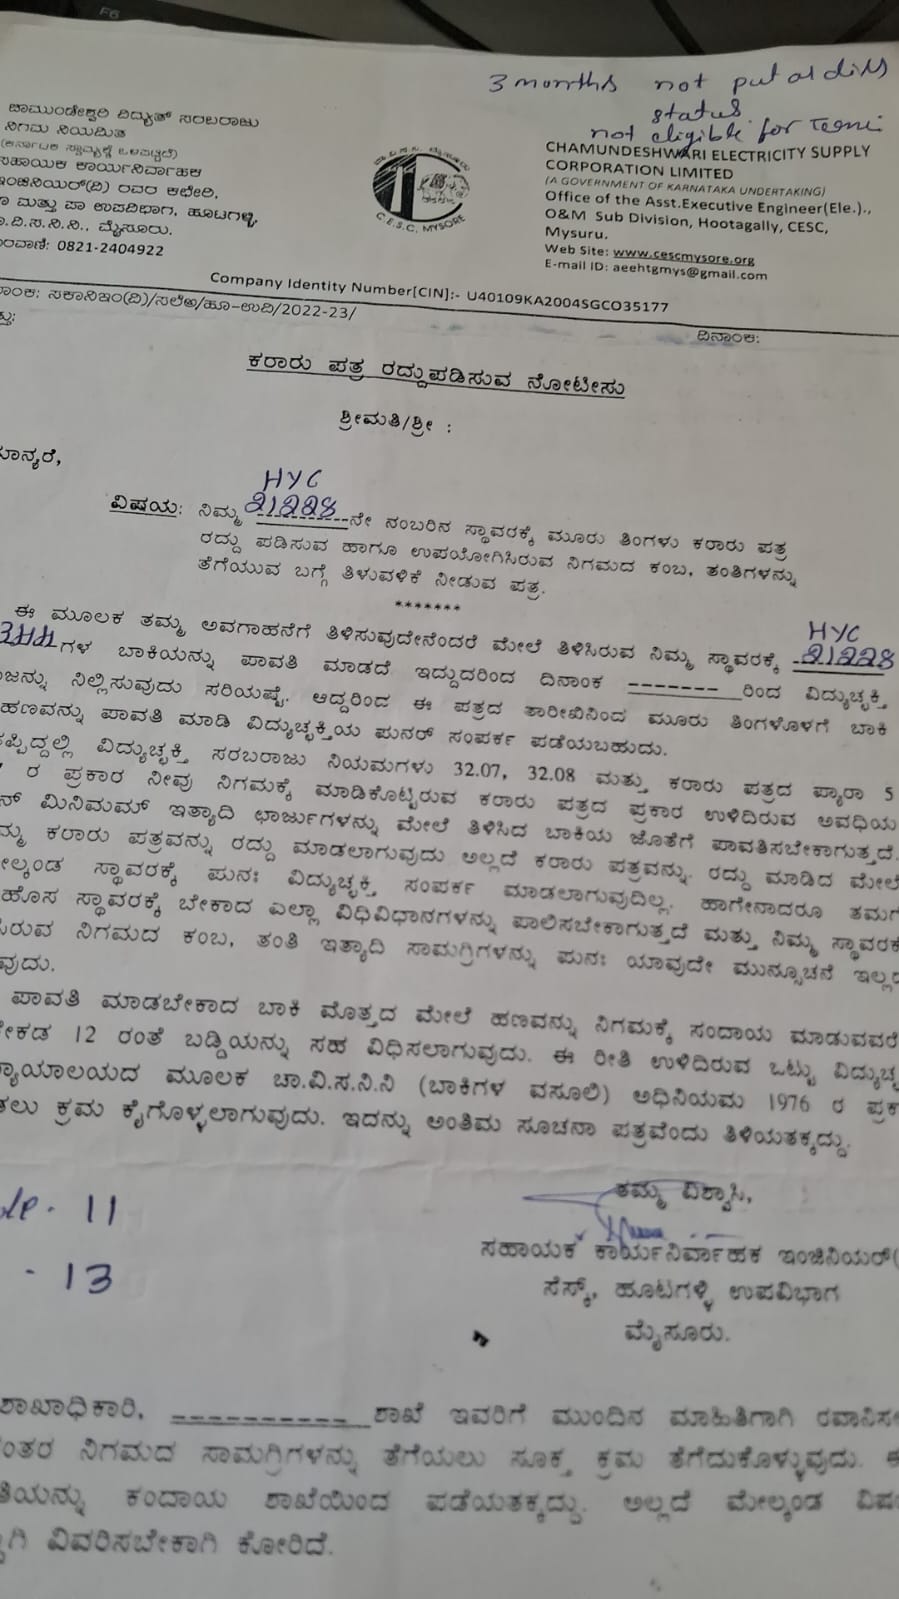 F6
3 months not put at diss
status
not eligible for
ಚಾಮುಂಡೇಶ್ವರಿ ವಿದ್ಯುತ್ ಸರಬರಾಜು
ನಿಗಮ ನಿಯಮಿತ
(ಕರ್ನಾಟಕ ಸ್ವಾಮ್ಯಕ್ಕೆ ಒಳಪಟ್ಟಿದೆ)
ಸಹಾಯಕ ಕಾರ್ಯನಿರ್ವಾಹಕ
ಇಂಜಿನಿಯರ್(ವಿ) ರವರ ಕಛೇರಿ,
ಮತ್ತು ಪಾ ಉಪವಿಭಾಗ, ಹೂಟಗಳ್ಳಿ,
ವಿ.ಸ.ನಿ.ನಿ., ಮೈಸೂರು.
ರವಾಣಿ: 0821-2404922
C.E.S.C. MYSORE
CHAMUNDESHWARI ELECTRICITY SUPPLY
CORPORATION LIMITED
(A GOVERNMENT OF KARNATAKA UNDERTAKING)
Office of the Asst.Executive Engineer(Ele.).,
O&M Sub Division, Hootagally, CESC,
Mysuru.
Web Site: www.cescmysore.org
E-mail ID: aeehtgmys@gmail.com
Company Identity Number[CIN]:- U40109KA2004SGCO35177
ಸಕಾನಿಇಂ(ವಿ)/ಸಲೆಅ/ಹೂ-ಉವಿ/2022-23/
ದಿನಾಂಕ:
ಕರಾರು ಪತ್ರ ರದ್ದುಪಡಿಸುವ ನೋಟೀಸು
ಶ್ರೀಮತಿ/ಶ್ರೀ :
ಮಾನ್ಯರೆ,
HYC
ವಿಷಯ: ನಿಮ್ಮ 21228 ನೇ ನಂಬರಿನ ಸ್ಥಾವರಕ್ಕೆ ಮೂರು ತಿಂಗಳು ಕರಾರು ಪತ್ರ
ರದ್ದು ಪಡಿಸುವ ಹಾಗೂ ಉಪಯೋಗಿಸಿರುವ ನಿಗಮದ ಕಂಬ, ತಂತಿಗಳನ್ನು
ತೆಗೆಯುವ ಬಗ್ಗೆ ತಿಳುವಳಿಕೆ ನೀಡುವ ಪತ್ರ.
*******
HYC
ಈ ಮೂಲಕ ತಮ್ಮ ಅವಗಾಹನೆಗೆ ತಿಳಿಸುವುದೇನೆಂದರೆ ಮೇಲೆ ತಿಳಿಸಿರುವ ನಿಮ್ಮ ಸ್ಥಾವರಕ್ಕೆ 21228
ಗಳ ಬಾಕಿಯನ್ನು ಪಾವತಿ ಮಾಡದೆ ಇದ್ದುದರಿಂದ ದಿನಾಂಕ -------ರಿಂದ ವಿದ್ಯುಚ್ಛಕ್ತಿ
ಜನ್ನು ನಿಲ್ಲಿಸುವುದು ಸರಿಯಷ್ಟೆ. ಆದ್ದರಿಂದ ಈ ಪತ್ರದ ತಾರೀಖಿನಿಂದ ಮೂರು ತಿಂಗಳೊಳಗೆ ಬಾಕಿ
ಹಣವನ್ನು ಪಾವತಿ ಮಾಡಿ ವಿದ್ಯುಚ್ಛಕ್ತಿಯ ಪುನರ್ ಸಂಪರ್ಕ ಪಡೆಯಬಹುದು.
ತಪ್ಪಿದ್ದಲ್ಲಿ ವಿದ್ಯುಚ್ಛಕ್ತಿ ಸರಬರಾಜು ನಿಯಮಗಳು 32.07, 32.08 ಮತ್ತು ಕರಾರು ಪತ್ರದ ಪ್ಯಾರಾ 5
ರ ಪ್ರಕಾರ ನೀವು ನಿಗಮಕ್ಕೆ ಮಾಡಿಕೊಟ್ಟಿರುವ ಕರಾರು ಪತ್ರದ ಪ್ರಕಾರ ಉಳಿದಿರುವ ಅವಧಿಯ
ನ್ ಮಿನಿಮಮ್ ಇತ್ಯಾದಿ ಛಾರ್ಜುಗಳನ್ನು ಮೇಲೆ ತಿಳಿಸಿದ ಬಾಕಿಯ ಜೊತೆಗೆ ಪಾವತಿಸಬೇಕಾಗುತ್ತದೆ.
ಮ್ಮ ಕರಾರು ಪತ್ರವನ್ನು ರದ್ದು ಮಾಡಲಾಗುವುದು ಅಲ್ಲದೆ ಕರಾರು ಪತ್ರವನ್ನು ರದ್ದು ಮಾಡಿದ ಮೇಲೆ
ಮೇಲ್ಕಂಡ ಸ್ಥಾವರಕ್ಕೆ ಪುನಃ ವಿದ್ಯುಚ್ಛಕ್ತಿ ಸಂಪರ್ಕ ಮಾಡಲಾಗುವುದಿಲ್ಲ. ಹಾಗೇನಾದರೂ ತಮಗೆ
ಹೊಸ ಸ್ಥಾವರಕ್ಕೆ ಬೇಕಾದ ಎಲ್ಲಾ ವಿಧಿವಿಧಾನಗಳನ್ನು ಪಾಲಿಸಬೇಕಾಗುತ್ತದೆ ಮತ್ತು ನಿಮ್ಮ ಸ್ಥಾವರಕ್ಕೆ
ಸಿರುವ ನಿಗಮದ ಕಂಬ, ತಂತಿ ಇತ್ಯಾದಿ ಸಾಮಗ್ರಿಗಳನ್ನು ಪುನಃ ಯಾವುದೇ ಮುನ್ಸೂಚನೆ ಇಲ್ಲದೆ
ವುದು.
ಪಾವತಿ ಮಾಡಬೇಕಾದ ಬಾಕಿ ಮೊತ್ತದ ಮೇಲೆ ಹಣವನ್ನು ನಿಗಮಕ್ಕೆ ಸಂದಾಯ ಮಾಡುವವರೆ
ಶೇಕಡ 12 ರಂತೆ ಬಡ್ಡಿಯನ್ನು ಸಹ ವಿಧಿಸಲಾಗುವುದು. ಈ ರೀತಿ ಉಳಿದಿರುವ ಒಟ್ಟು ವಿದ್ಯುಚ್ಛ
ನ್ಯಾಯಾಲಯದ ಮೂಲಕ ಚಾ.ವಿ.ಸ.ನಿ.ನಿ (ಬಾಕಿಗಳ ವಸೂಲಿ) ಅಧಿನಿಯಮ 1976 ರ ಪ್ರಕ
ಡಲು ಕ್ರಮ ಕೈಗೊಳ್ಳಲಾಗುವುದು. ಇದನ್ನು ಅಂತಿಮ ಸೂಚನಾ ಪತ್ರವೆಂದು ತಿಳಿಯತಕ್ಕದ್ದು.
ತಮ್ಮ ವಿಶ್ವಾಸಿ,
11
- 13
ಸಹಾಯಕ ಕಾರ್ಯನಿರ್ವಾಹಕ ಇಂಜಿನಿಯರ್(
ಸೆಸ್ಕ್, ಹೂಟಗಳ್ಳಿ ಉಪವಿಭಾಗ
ಮೈಸೂರು.
ಶಾಖಾಧಿಕಾರಿ, ----------ಶಾಖೆ ಇವರಿಗೆ ಮುಂದಿನ ಮಾಹಿತಿಗಾಗಿ ರವಾನಿಸ
ನಂತರ ನಿಗಮದ ಸಾಮಗ್ರಿಗಳನ್ನು ತೆಗೆಯಲು ಸೂಕ್ತ ಕ್ರಮ ತೆಗೆದುಕೊಳ್ಳುವುದು. ಈ
ತಿಯನ್ನು ಕಂದಾಯ ಶಾಖೆಯಿಂದ ಪಡೆಯತಕ್ಕದ್ದು. ಅಲ್ಲದೆ ಮೇಲ್ಕಂಡ ವಿಷ
ಗಿ ವಿವರಿಸಬೇಕಾಗಿ ಕೋರಿದೆ.